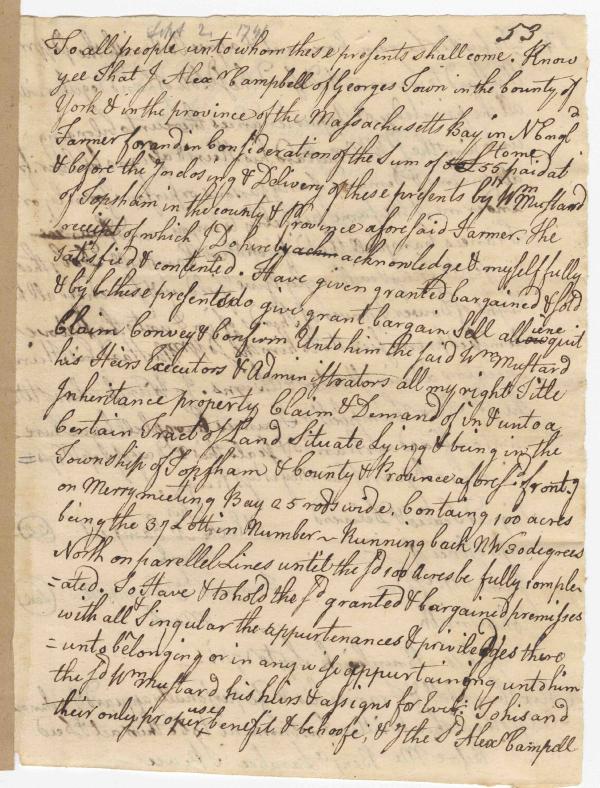 Sept 2, 174
53
To all people unto whom these presents shall come. Know
yee That I Alexr Campbell of Georges Town in the County of
York & in the province of the Massachusetts Bay in N Engld
Farmer for and in Consideration of the Sum of £55 to me paid at
& before the Inclosing & Delivery of these presents by Wm Mustard
of Topsham in the county & Province aforesaid Farmer. The
receipt of which I Do hereby acknowledge & myself fully
satisfied & contented. Have given granted bargained & sold
& by these presents do give grant bargain Sell aliene quit
Claim Convey & Confirm Unto him the said Wm Mustard
his Heirs Executors & Adminstrators all my right Title
Inheritance property Claim & Demand of in & unto a
Certain Tract of Land Situate Lying & being in the
Township of Topsham & County & Province afores. fronting
on Merrymeeting Bay 25 rods wide. Containg 100 acres
being the 37 Lott in Number ~ Running back NW 30 degrees
North on parellel Lines until the sd 100 Acres be fully comple-
=ated. To Have & to hold the sd granted & bargained premisses
with all Singular the appurtenances & priviledges there
=unto belonging or in any wise appurtaining unto him
the sd Wm Mustard his heirs & assigns for Ever: To his and
their only proper use benefit & behoofe; & I the Sd Alexr Campell